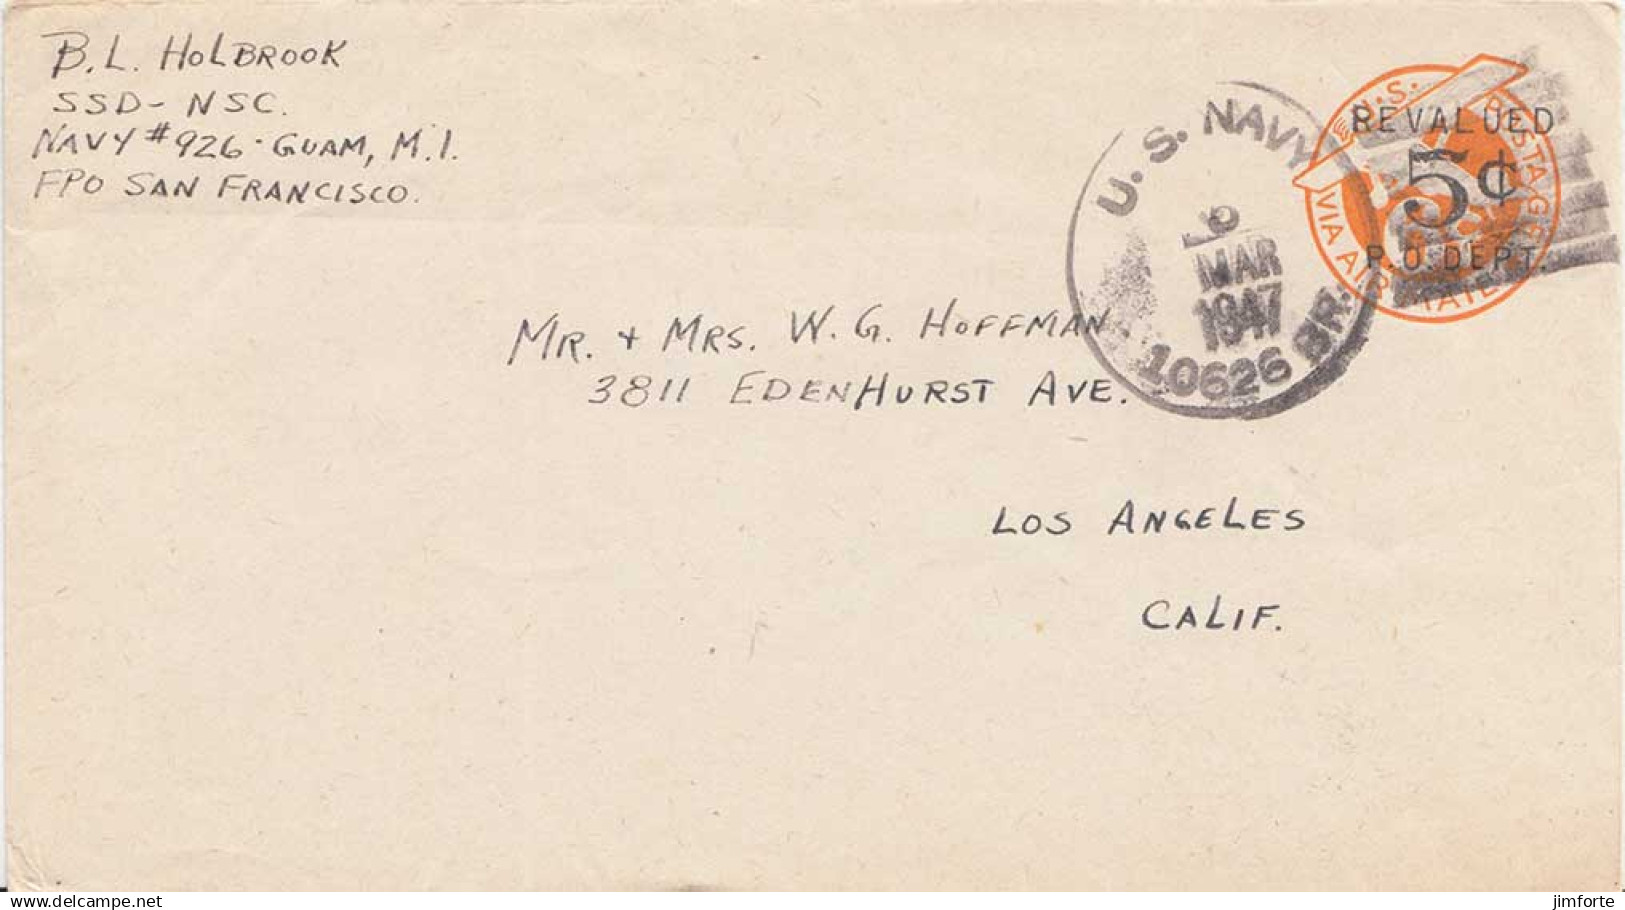 B.L. HOLBROOK
SSD - NSC.
NAVY #926 - GUAM, M.I.
FPO SAN FRANCISCO.
U.S. POSTAGE
VIA AIR MAIL
REVALUED
5¢
P.O. DEPT.
U.S. NAVY
MAR
1947
10626 BR.
MR. + MRS. W. G. HOFFMAN
3811 EDENHURST AVE.
LOS ANGELES
CALIF.
delcampe.net
jimforte